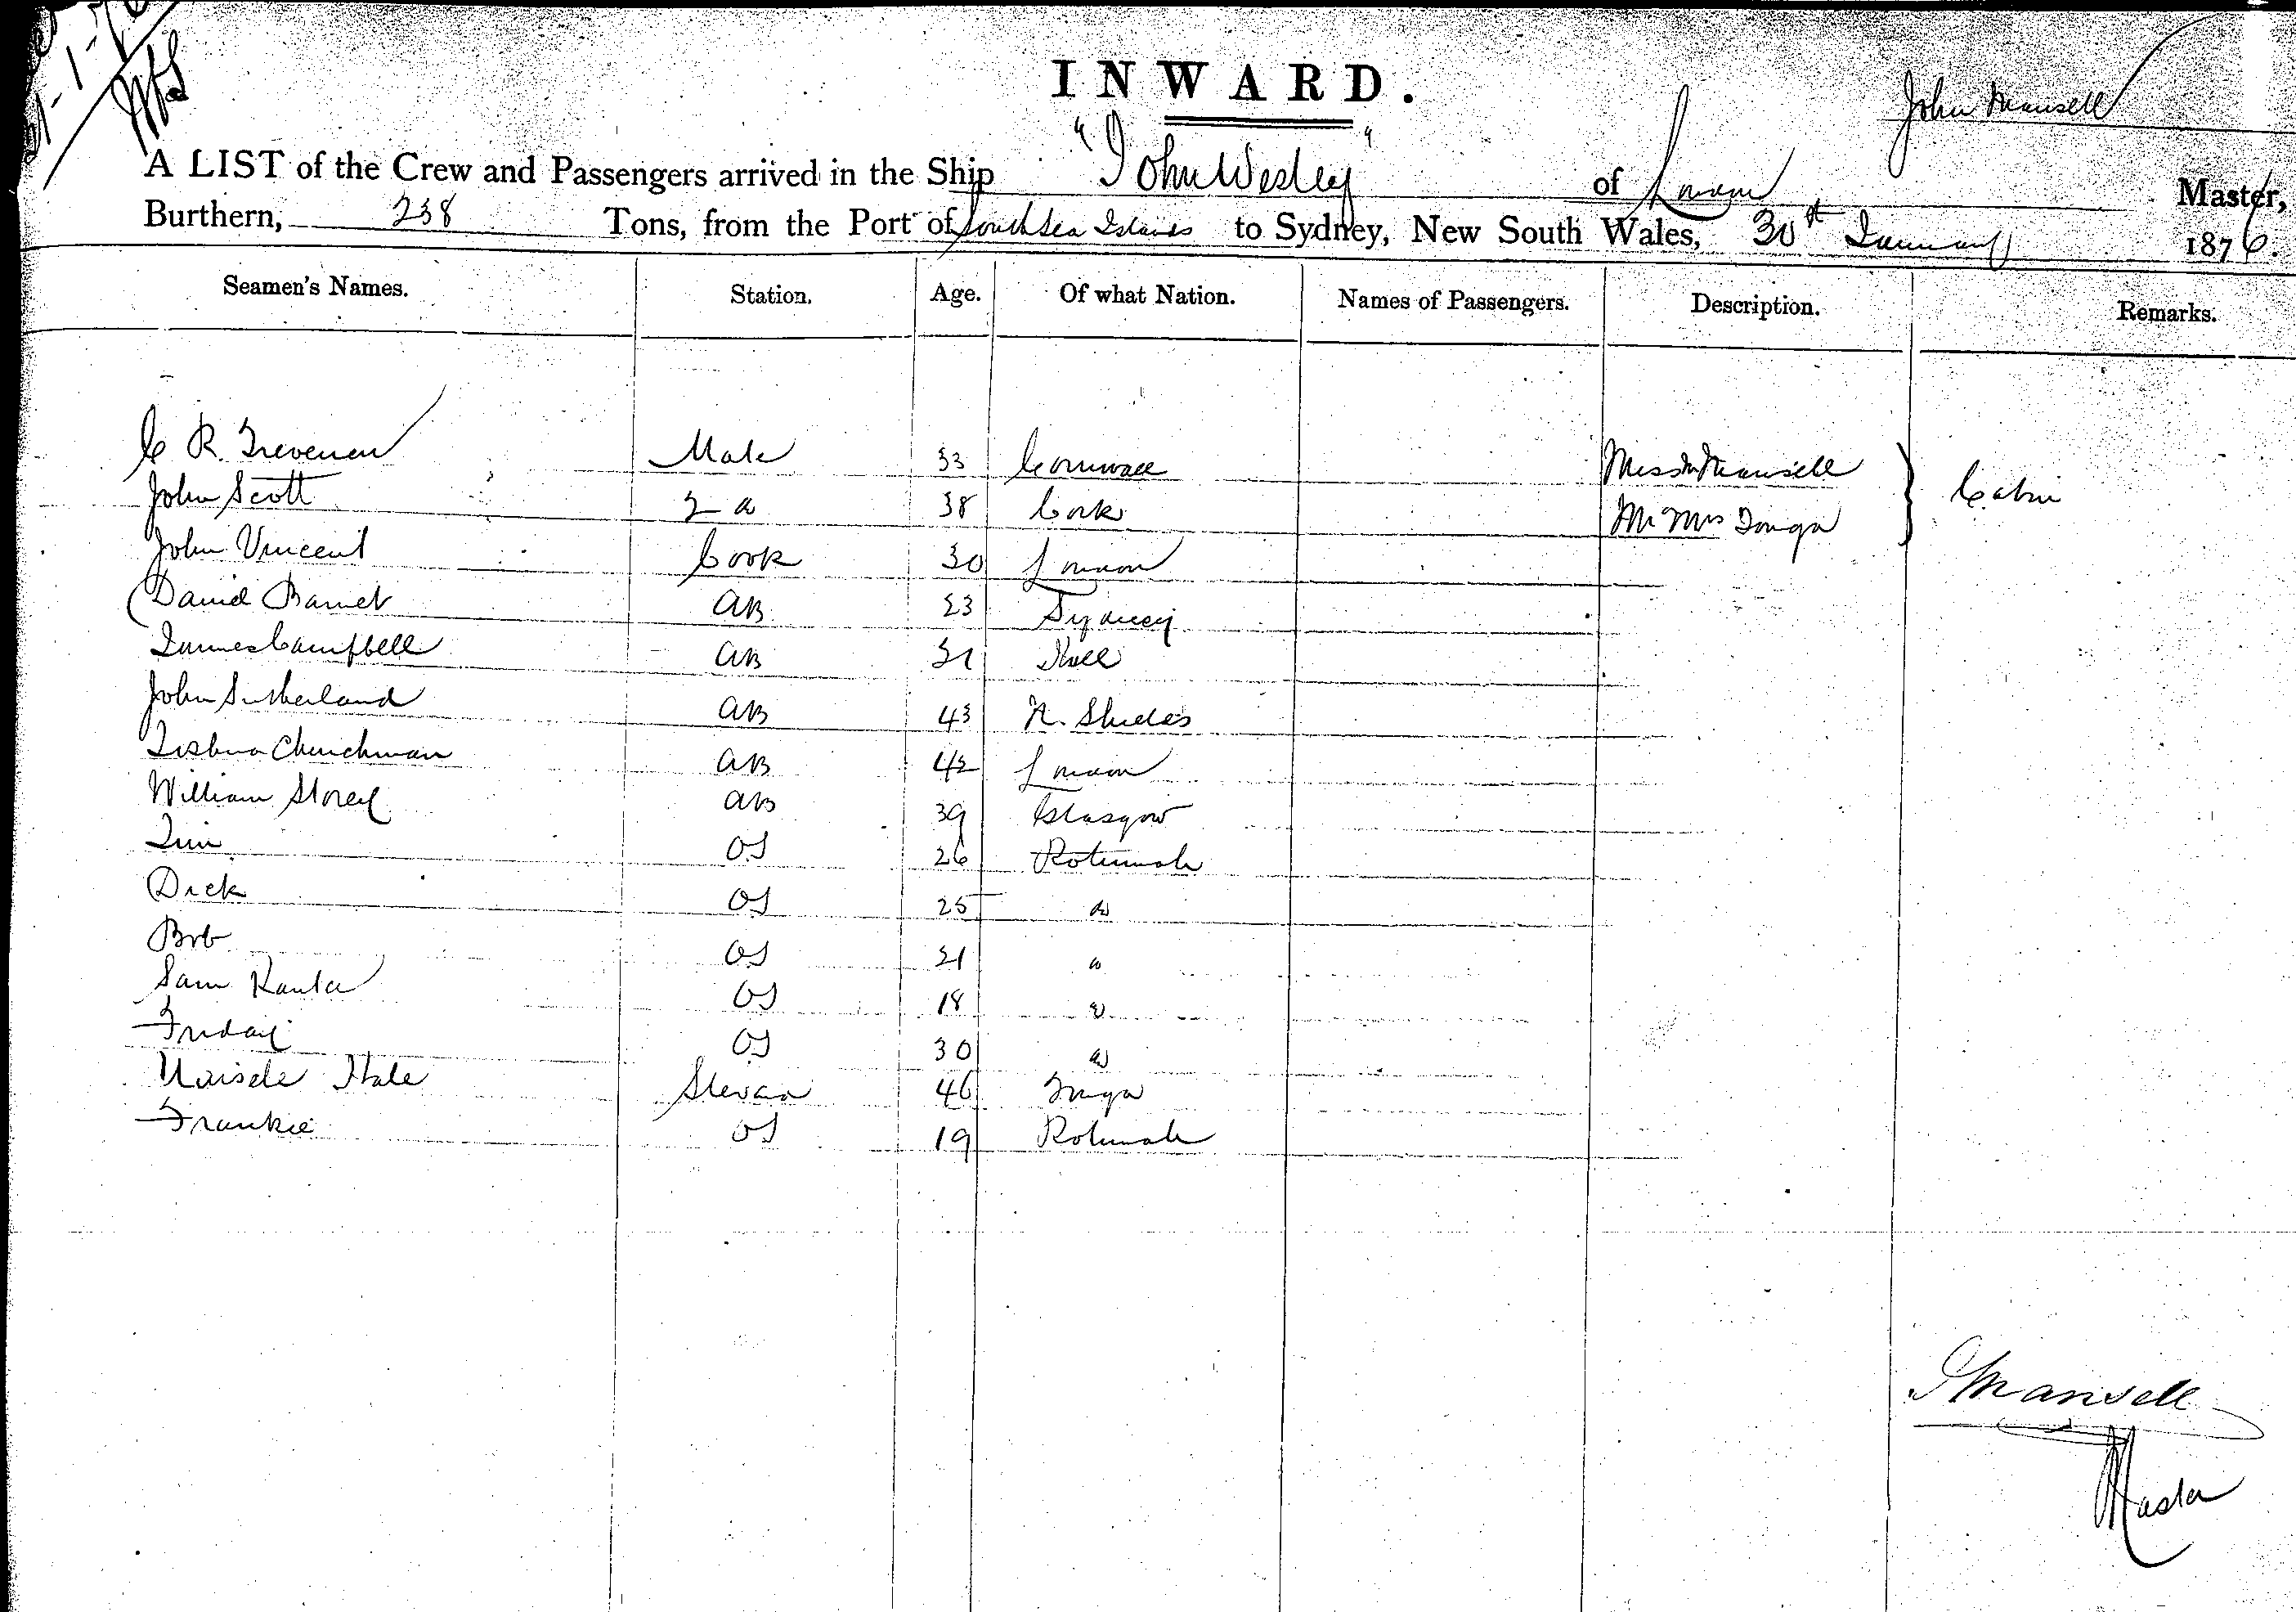 INWARD.
John Mansell
A LIST of the Crew and Passengers arrived in the Ship "John Wesley" of London Master,
Burthern, 238 Tons, from the Port of South Sea Islands to Sydney, New South Wales, 30th January 1876.
Seamen's Names. Station. Age. Of what Nation. Names of Passengers. Description. Remarks.
C R. Trevenen Mate 33 Cornwall Miss M Mansell
John Scott 2 38 Cork Mr Mrs Tonga } Cabin
John Vincent Cook 30 London
David Barnet AB 23 Sydney
James Campbell AB 31 Hull
John Sutherland AB 43 N. Shields
Joshua Churchman AB 42 London
William Storey AB 39 Glasgow
Jim OS 26 Rotumah
Dick OS 25 "
Bob OS 21 "
Sam OS 18 "
Friday OS 30 "
Hale Steward 46 Tonga
Frankie OS 19 Rotumah
J Mansell
Master